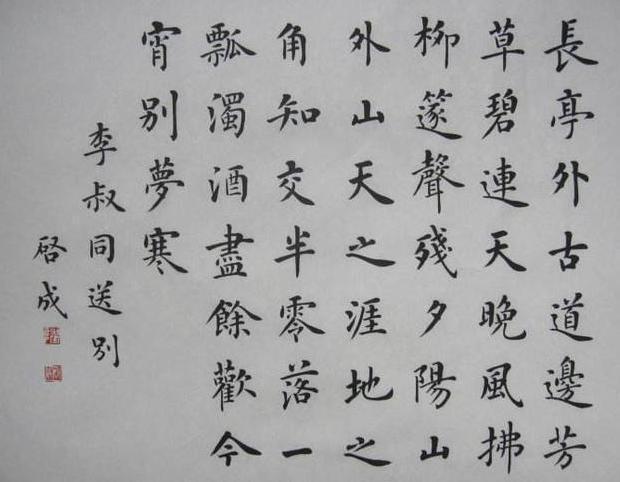 長亭外古道邊芳
草碧連天晚風拂
柳篴聲殘夕陽山
外山天之涯地之
角知交半零落一
瓢濁酒盡餘歡今
宵別夢寒
李叔同送別
啓成